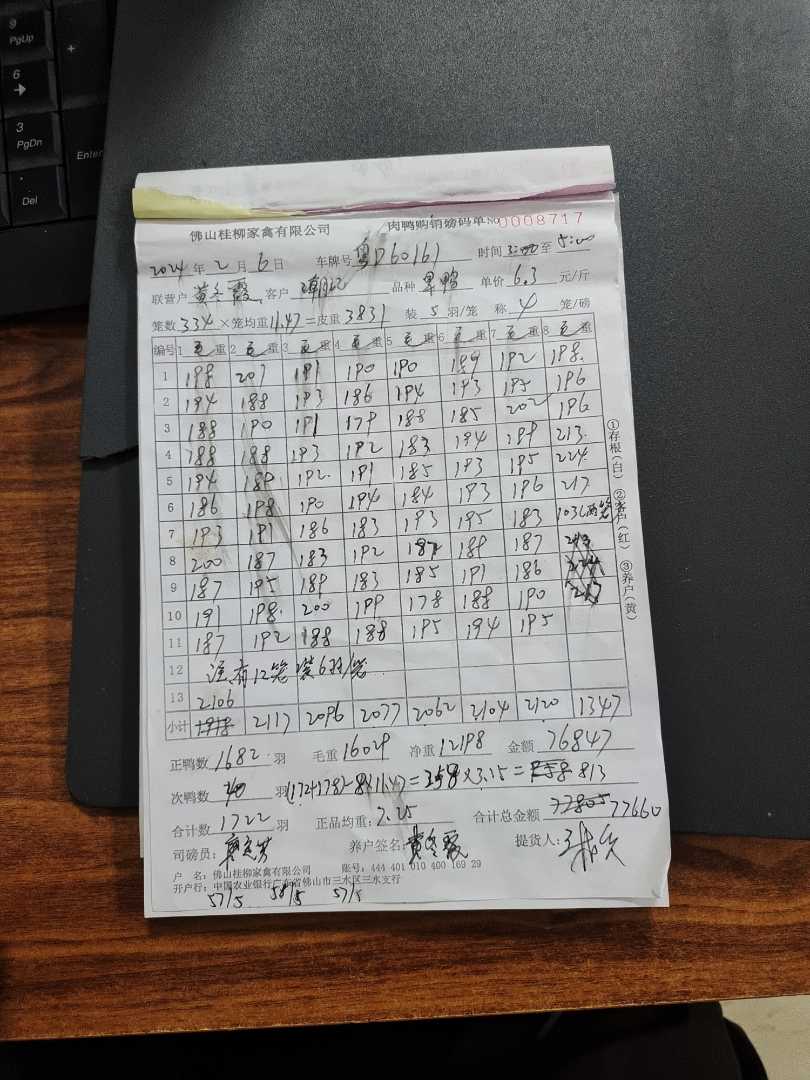 9
PgUp
+
6
3
PgDn
Enter
Del
佛山桂柳家禽有限公司 肉鸭购销磅码单 No 0008717
2024 年 2 月 6 日 车牌号 粤D60161 时间 3:00 至 5:00
联营户 黄冬霞 客户 品种 单价 6.3 元/斤
笼数 334 × 笼均重 11.47 = 皮重 3831 装 5 羽/笼 称 4 笼/磅
编号 1 毛重 2 毛重 3 毛重 4 毛重 5 毛重 6 毛重 7 毛重 8 毛重
1 198 207 191 190 190 189 192 198
2 194 188 193 186 194 193 195 196
3 188 190 191 179 188 185 202 196
4 188 188 193 192 183 194 199 213
5 194 189 192 191 185 193 195 224
6 186 198 190 194 184 193 196 217
7 193 191 186 183 193 195 183 103(两笼)
8 200 187 183 192 187 189 187
9 187 195 189 183 185 191 186
10 191 198 200 199 178 188 190
11 187 192 188 188 195 194 195
12 注有12笼装6羽/笼
13 2106
小计 2117 2096 2077 2062 2104 2120 1347
①存根(白) ②客户(红) ③养户(黄)
正鸭数 1682 羽 毛重 16029 净重 12198 金额 76847
次鸭数 40 羽 (172+178)-8×11.47=258×3.15= 813
合计数 1722 羽 正品均重: 7.25 合计总金额 77660
司磅员: 养户签名: 黄冬霞 提货人:
户 名: 佛山桂柳家禽有限公司 账号: 444 401 010 400 169 29
开户行: 中国农业银行广东省佛山市三水区三水支行
57/5 58/5 57/5